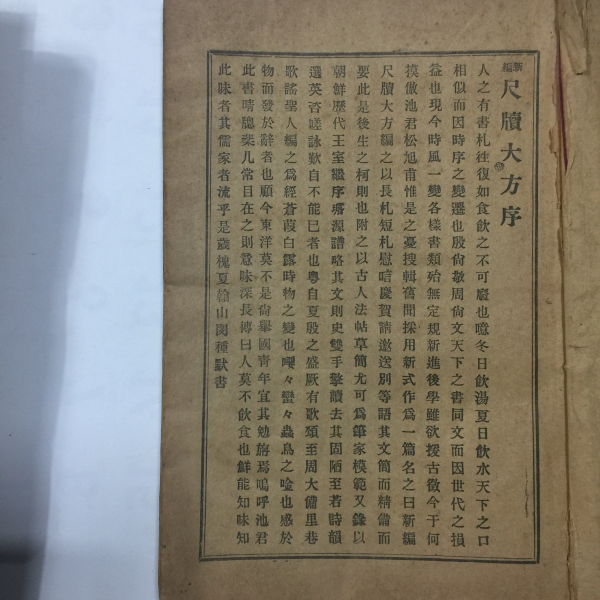 新編尺牘大方序
人之有書札徃復如食飮之不可廢也噫冬日飮湯夏日飮水天下之口
相似而因時序之變遷也殷尙敬周尙文天下之書同文而因世代之損
益也現今時風一變各樣書類殆無定規新進後學雖欲援古徵今于何
摸倣池君松旭甫惟是之憂搜輯舊聞採用新式作爲一篇名之曰新編
尺牘大方編之以長札短札慰唁慶賀請邀送別等語其文簡而精備而
要此是後生之柯則也附之以古人法帖草簡尤可爲筆家模範又錄以
朝鮮歷代王室繼序璿源譜略其文則史雙手擎讀去其固陋至若詩韻
選英咨嗟詠歎自不能已者也粤自夏殷之盛厥有歌頌至周大備里巷
歌謠聖人編之爲經蒼葭白露時物之變也嚶々蠻々蟲鳥之唫也感於
物而發於辭者也顧今東洋莫不是尙舉國靑年宜其勉旃焉嗚呼池君
此書晴牕棐几常目在之則意味深長傳曰人莫不飮食也鮮能知味知
此味者其儒家者流乎是歲槐夏 山閔種默書